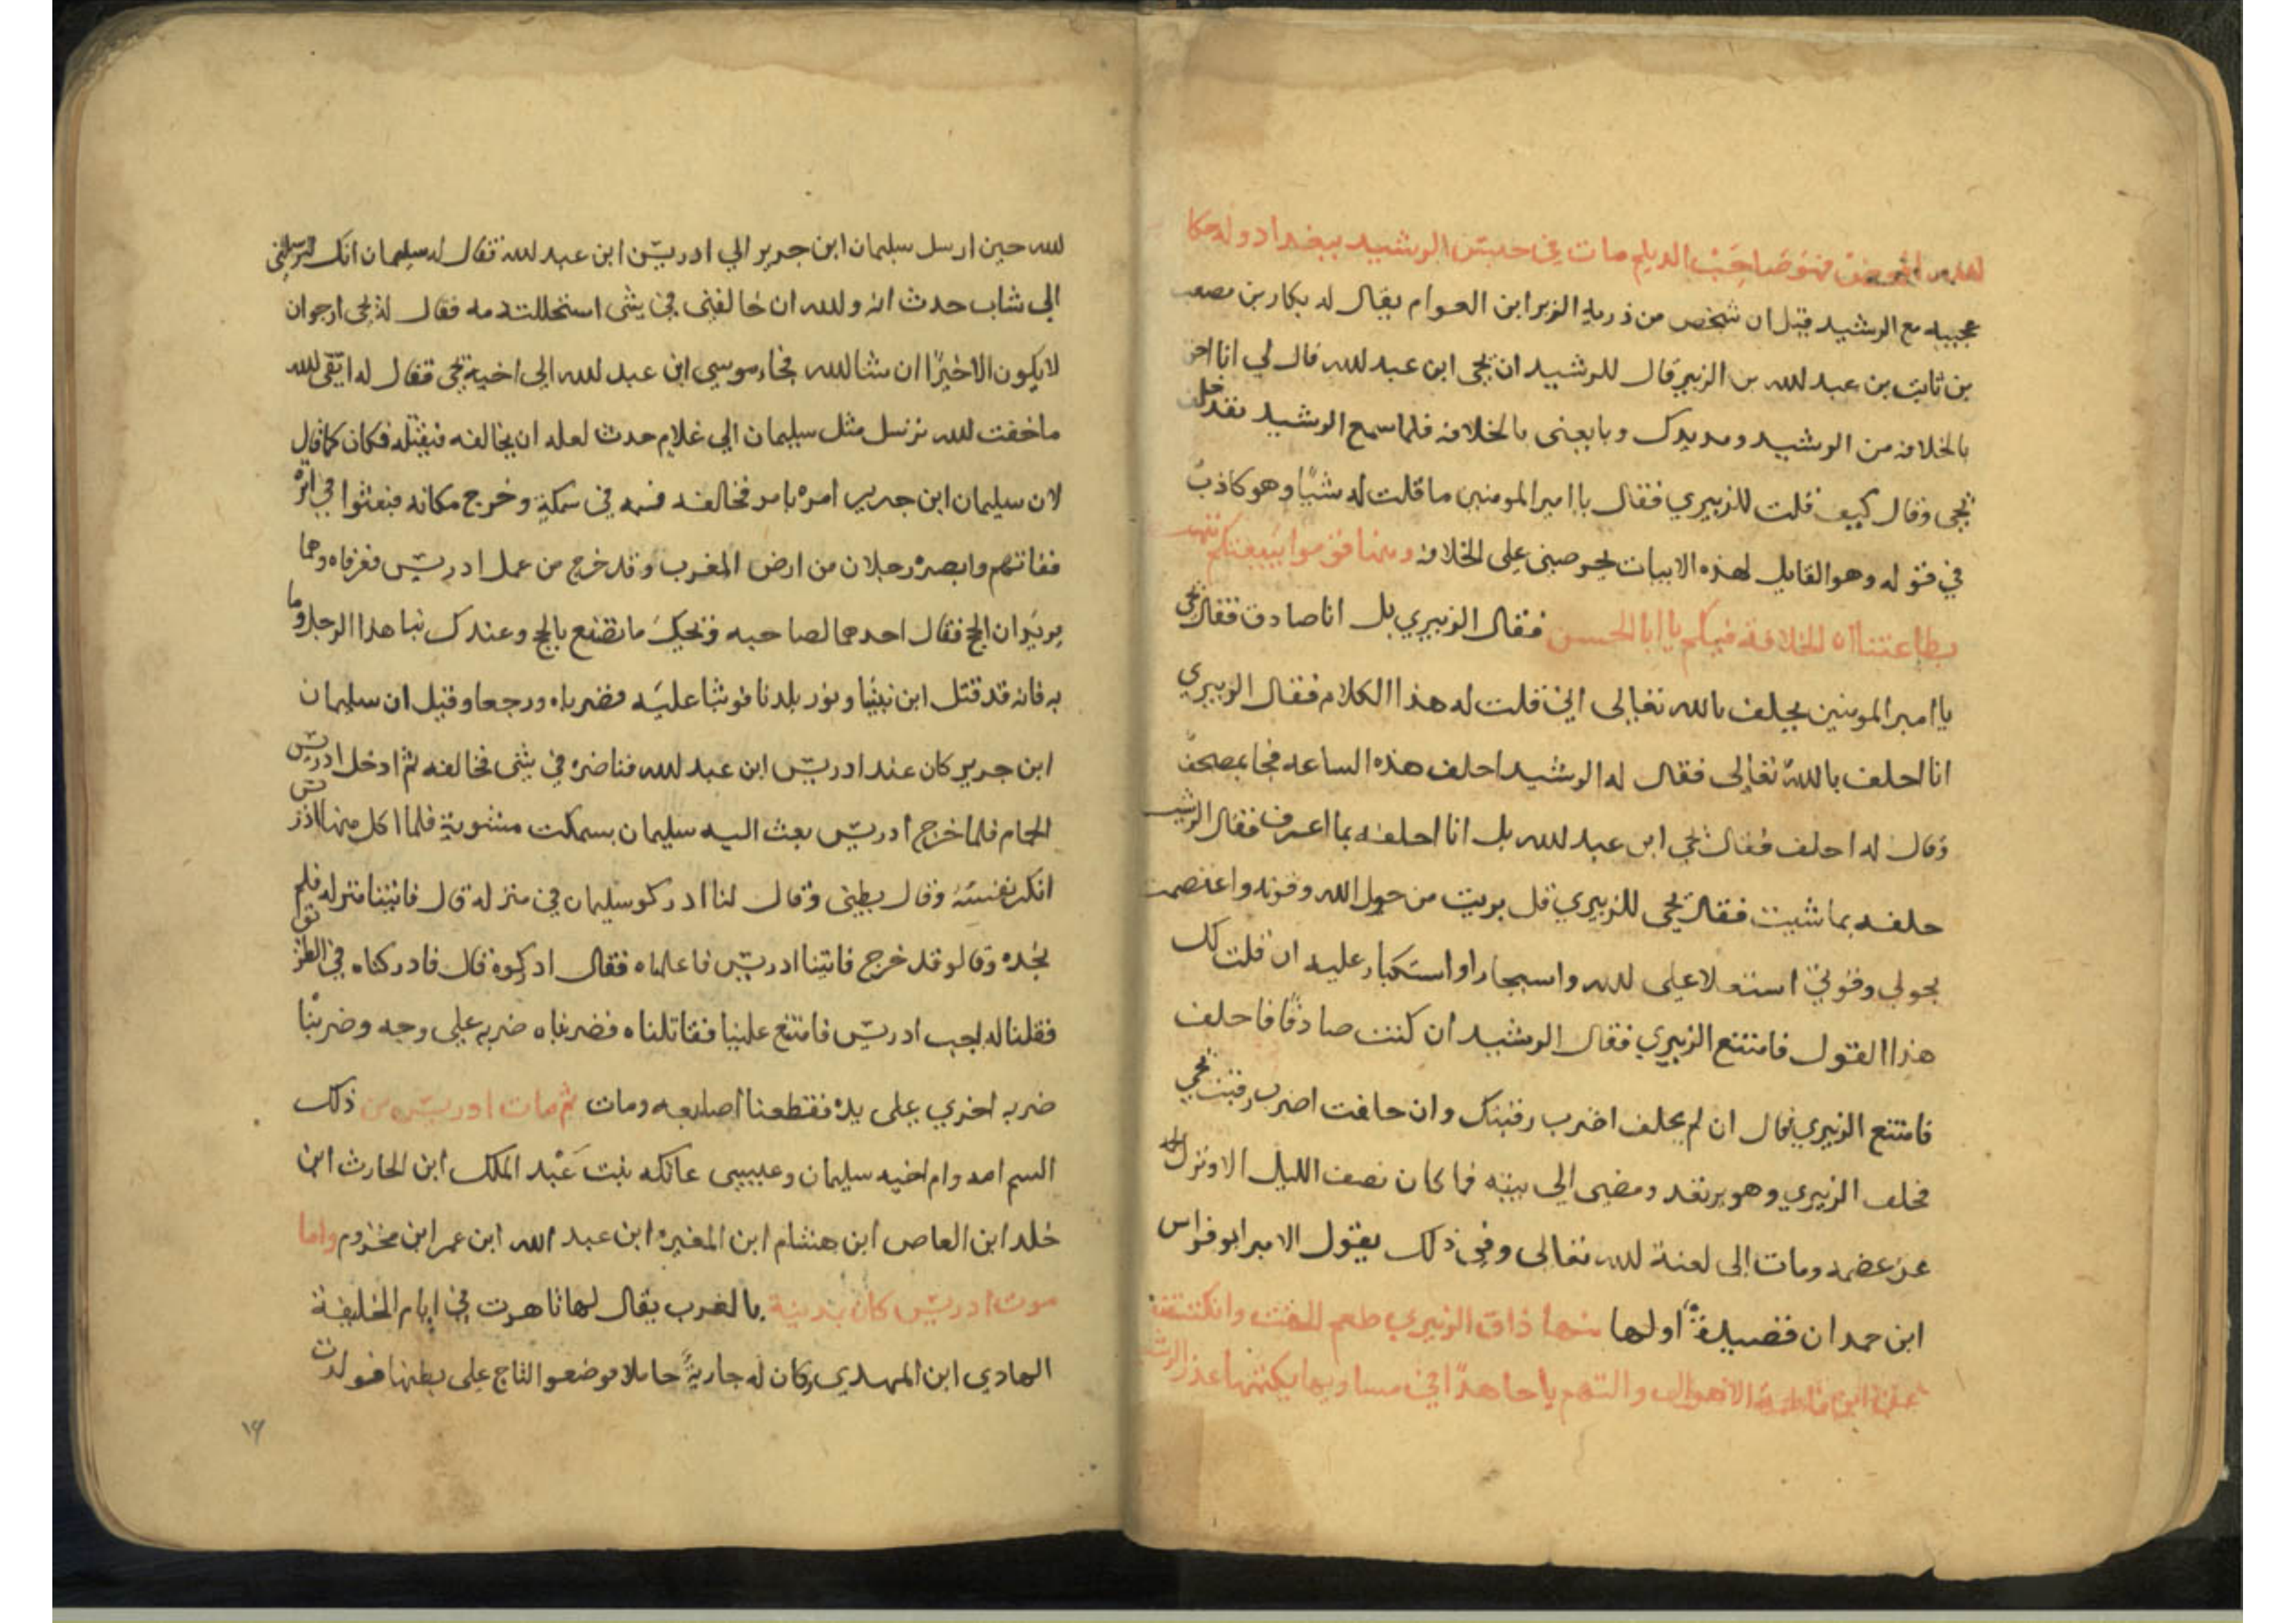 فهو صاحب الديلم مات في حبس الرشيد ببغداد وله حكا
عجيبه مع الرشيد قيل ان شخص من ذريه الزبر ابن العوام يقال له بكار بن مصعب
بن ثابت بن عبد لله بن الزبير قال للرشيد ان يحي ابن عبد لله قال لي انا احق
بالخلافه من الرشيد ومد يدك وبايعنى بالخلافه فلما سمع الرشيد
يحي وقال كيف قلت للزبيري فقال يا امير المومنين ما قلت له شيًا وهو كاذبٌ
في قوله وهو القايل لهذه الابيات يحرصنى على الخلافه قوموا ببيعتكم
بطاعتنا ان الخلافة فيكم يا ابا الحسن فقال الزبيري بل انا صادق فقال يحي
يا امير المومنين يحلف بالله تعالى اني قلت له هذا الكلام فقال الزبيري
انا احلف بالله تعالى فقال له الرشيد احلف هذه الساعه فجا بمصحف
وقال له احلف فقال يحي ابن عبد لله بل انا احلفه بما اعرف فقال الرشيد
حلفه بما شيت فقال يحي للزبيري قل بريت من حول الله وقوته واعتصمت
بحولي وقوتي استعلا على لله واستكبار عليه ان قلت لك
هذا القول فامتنع الزبيري فقال الرشيد ان كنت صادقًا فاحلف
فامتنع الزبيري فقال ان لم يحلف اضرب رقبتك وان حلفت اضرب رقبت يحي
فحلف الزبيري وهو يرتعد ومضى الى بيته فما كان نصف الليل الا ونزل
عن ومات الى لعنة لله تعالى وفي ذلك يقول الامير ابو فراس
ابن حمدان قصيدةً اولها منها ذاق الزبيري طعم الحنث وانكشفت
عن ابن فاطمة الاقوال والتهم يا جاهدًا في مساويها يكتمها غدر الرشيد
لله حين ارسل سليمان ابن جرير الي ادريس ابن عبد لله فقال له سليمان انك ترسلني
الي شاب حدث انه ولله ان خالفني في شي استحللت دمه فقال له يحي ارجوان
لا يكون الا خيرًا ان شا لله فجاء موسي ابن عبد لله الى اخيه يحي فقال له اتقى لله
ما خفت لله ترسل مثل سليمان الي غلام حدث لعله ان يخالفه فيقتله فكان كما قال
لان سليمان ابن جرير امره بامر فخالفه فسمه في سمكةٍ وخرج مكانه فبعثوا في اثره
ففاتهم وابصره رجلان من ارض المغرب وقد خرج من عمل ادريس فعرفاه وهما
يريدان الحج فقال احدهما لصاحبه ويحك ما تصنع بالحج وعندك نبا هذا الرجل وما
به فانه قد قتل ابن نبيّا ونور بلدنا فوثبا عليه فضرباه ورجعا وقيل ان سليمان
ابن جرير كان عند ادريس ابن عبد لله فناضره في شي فخالفه ثم ادخل ادريس
الحمام فلما خرج ادريس بعث اليه سليمان بسمكت مشوية فلما اكل منها ادريس
انكر نفسه وقال بطني وقال لنا ادركو سليمان في منزله قال فاتينا منزله فلم
نجده وقالو قد خرج فاتينا ادريس فاعلمناه فقال ادركوه قال فادركناه في الطريق
فقلنا له اجب ادريس فامتنع علينا فقاتلناه فضربناه ضربه على وجه وضربنا
ضربه اخري على يده فقطعنا اصابعه ومات ثم مات ادريس من ذلك
السم امه وام اخيه سليمان وعيسي عاتكه بنت عبد الملك ابن الحارث ابن
خلد ابن العاص ابن هشام ابن المغيره ابن عبد الله ابن عمر ابن مخزوم واما
موت ادريس كان بمدينة بالغرب يقال لها تاهرت في ايام الخليفة
الهادي ابن المهدي وكان له جاريةً حاملا فوضعوا التاج على بطنها فولدت
١٦